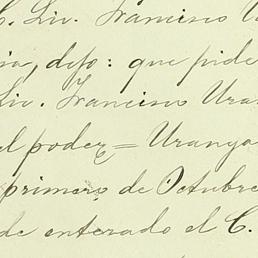 C. Lic. Francisco U
ia, dijo: que pide
Lic. Francisco Uran
el poder = Uranga
primero de Octubre
de enterado el C.